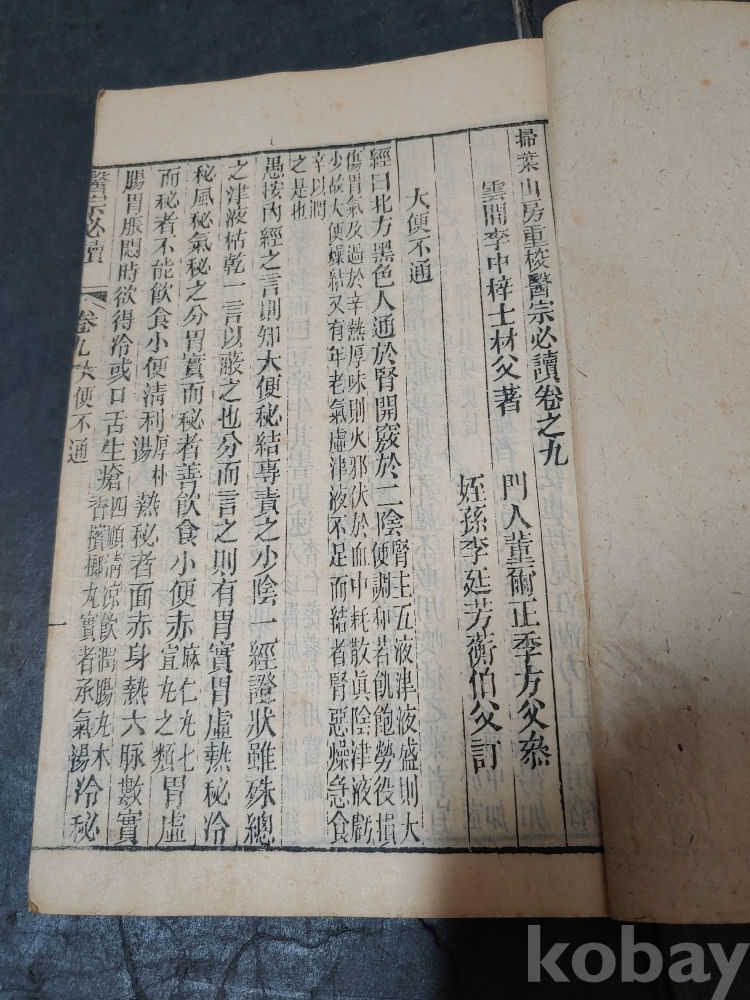 掃葉山房重校醫宗必讀卷之九
雲間李中梓士材父著
門人董爾正季方父叅
姪孫李廷芳蘅伯父訂
大便不通
經曰北方黑色人通於腎開竅於二陰腎主五液津液盛則大
便調和若飢飽勞役損
傷胃氣及過於辛熱厚味則火邪伏於血中耗散眞陰津液虧
少故大便燥結又有年老氣虛津液不足而結者腎惡燥急食
辛以潤
之是也
愚按內經之言則知大便秘結專責之少陰一經證狀雖殊總
之津液枯乾一言以蔽之也分而言之則有胃實胃虛熱秘冷
秘風秘氣秘之分胃實而秘者善飲食小便赤麻仁丸七
宣丸之類胃虛
而秘者不能飲食小便清利厚朴
湯熱秘者面赤身熱六脉數實
腸胃脹悶時欲得冷或口舌生瘡四順清凉飲潤腸丸木
香檳榔丸實者承氣湯冷秘
醫宗必讀
卷九大便不通
一
kobay